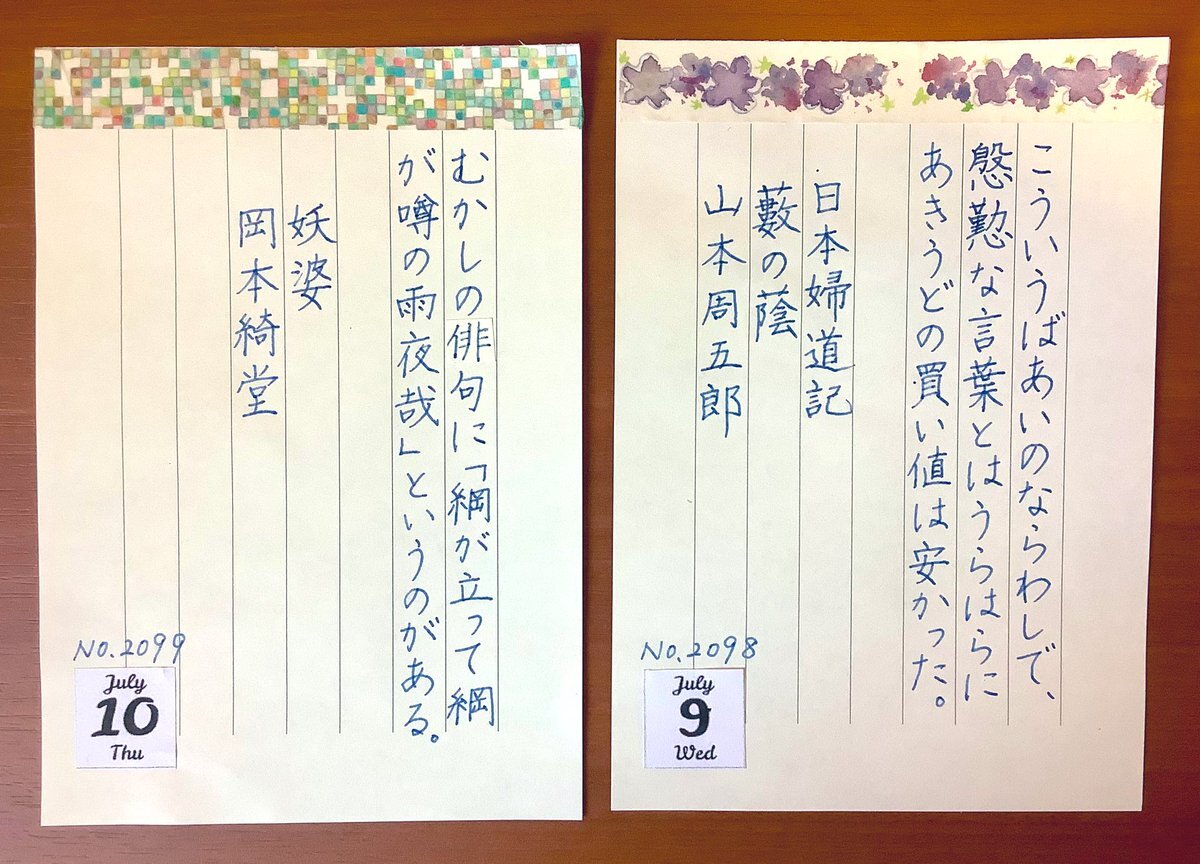 こういうばあいのならわしで、
慇懃な言葉とはうらはらに
あきうどの買い値は安かった。
日本婦道記
藪の蔭
山本周五郎
NO.2098
July
9
Wed
むかしの俳句に「綱が立って綱
が噂の雨夜哉」というのがある。
妖婆
岡本綺堂
NO.2099
July
10
Thu